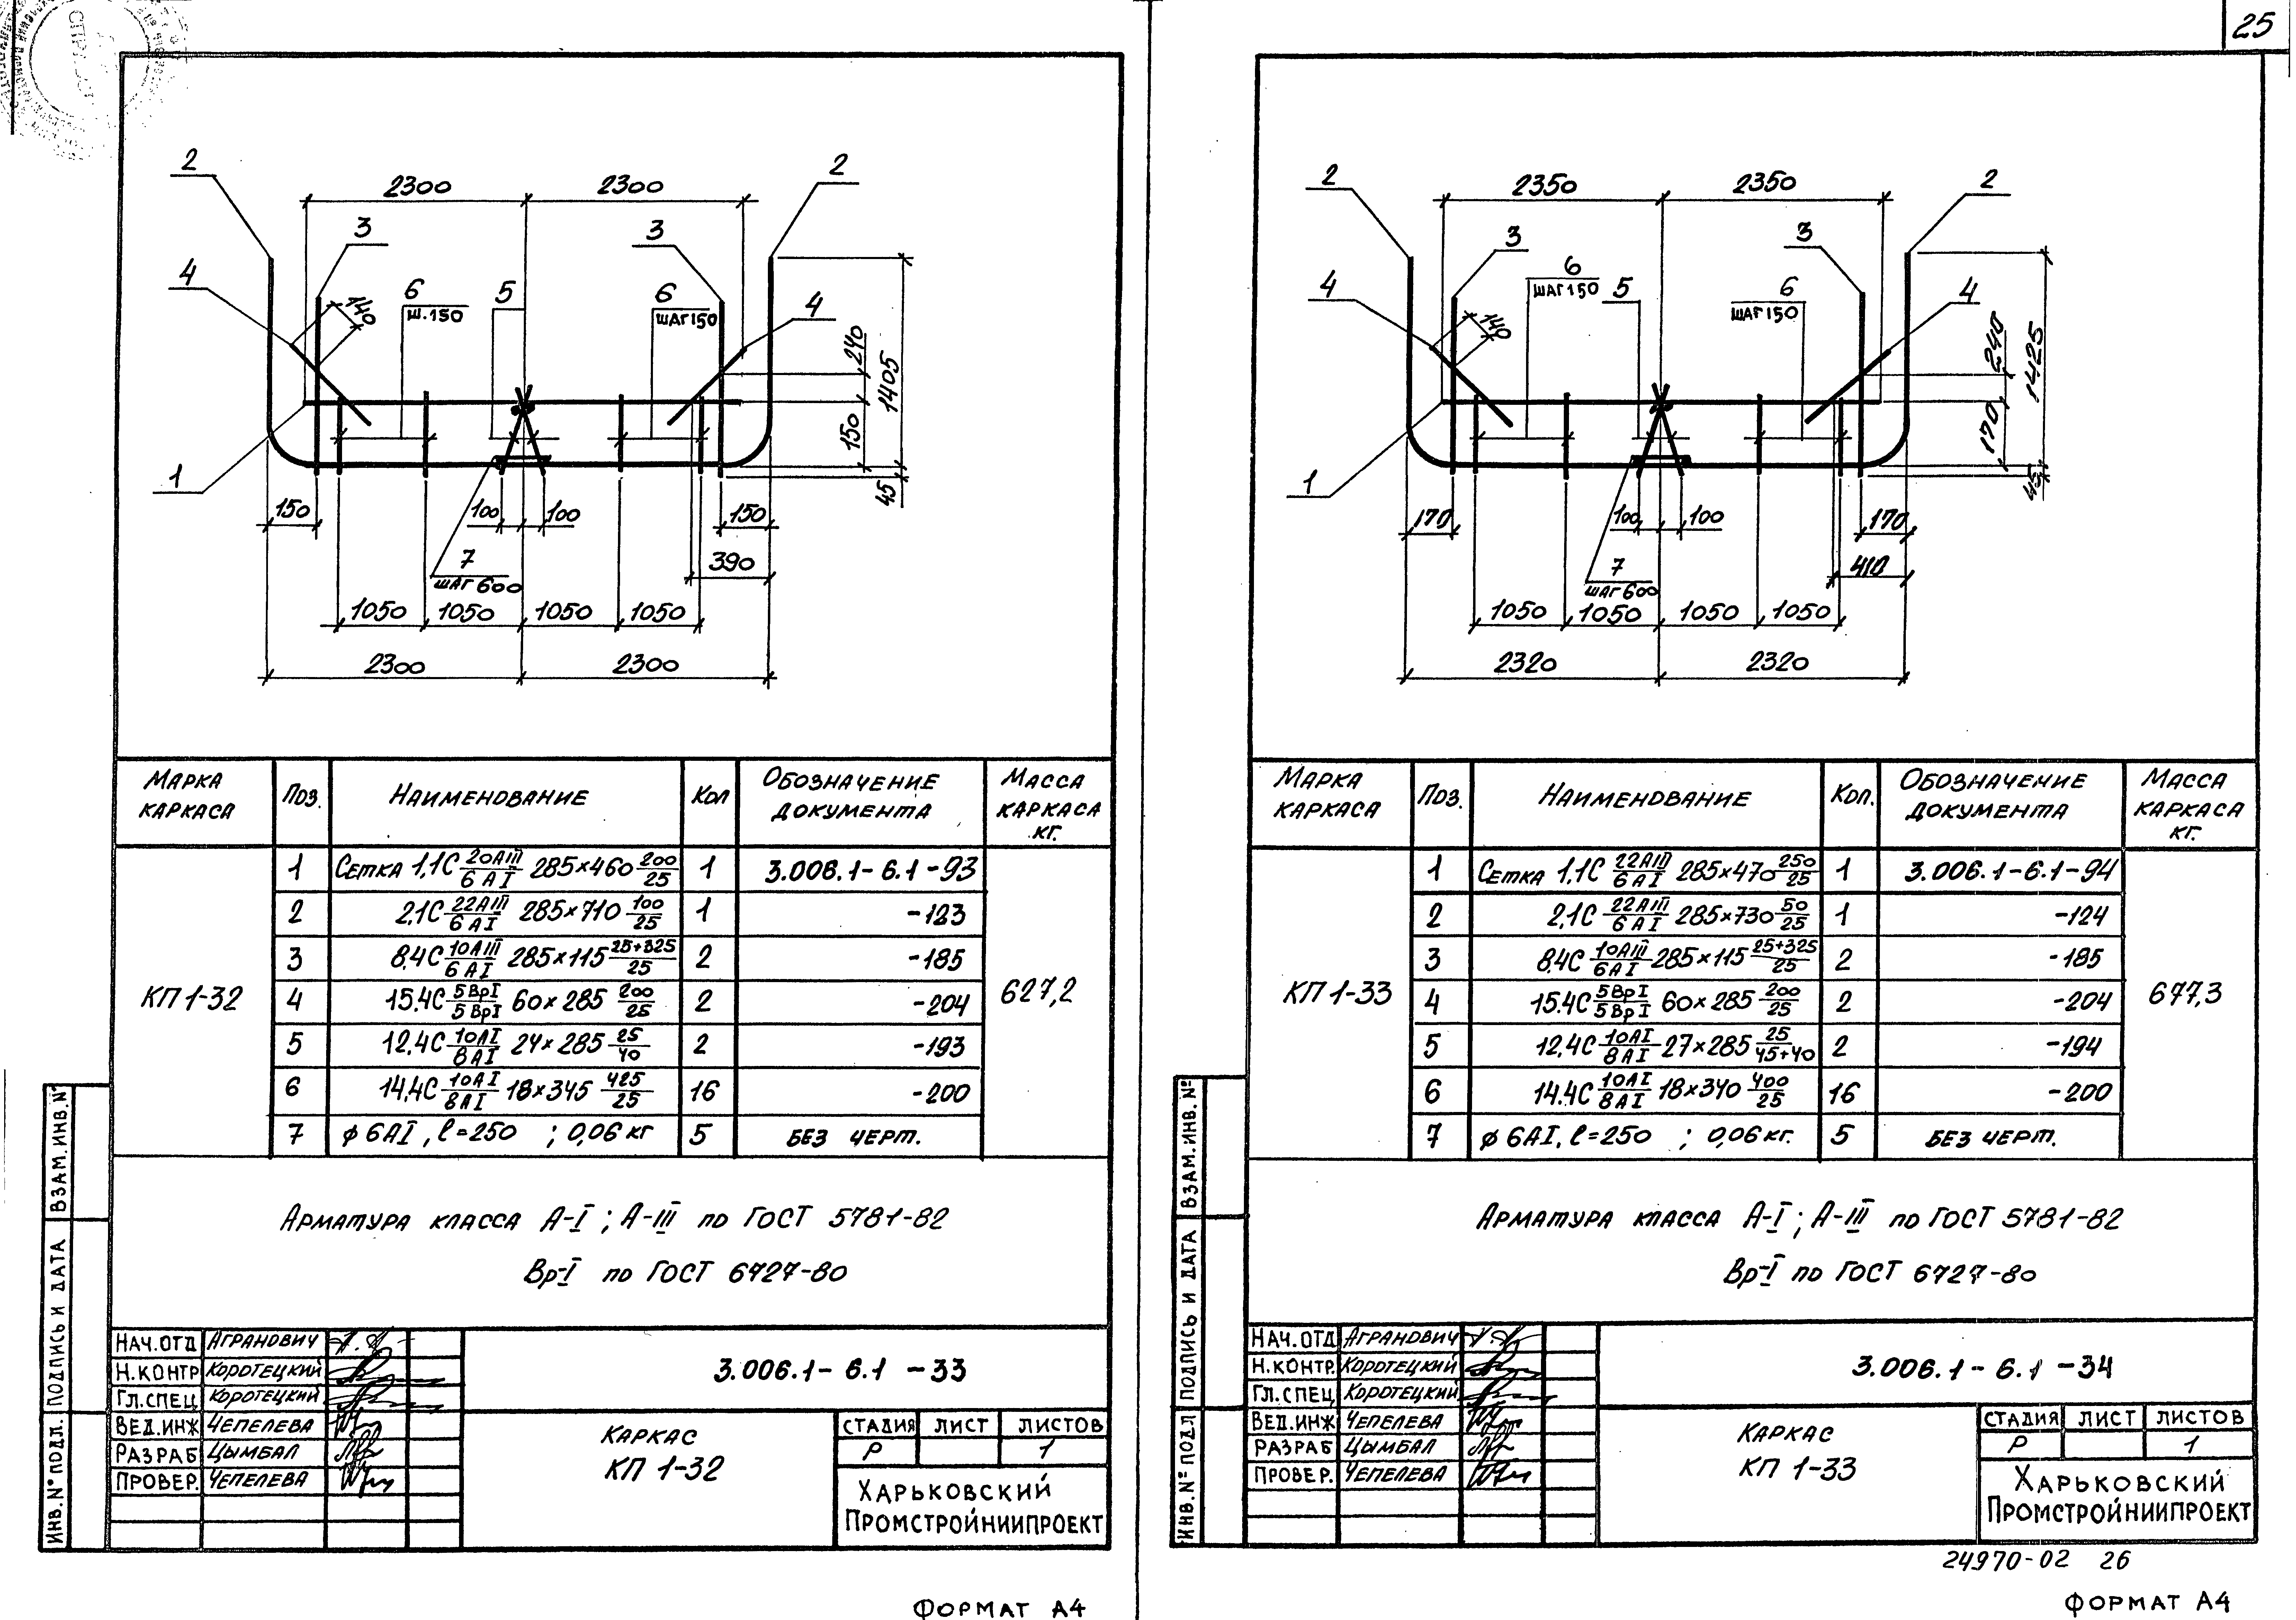 25
2
2
2300
2300
3
3
4
140
6
Ш.150
5
6
ШАГ150
4
240
1405
150
45
1
150
100
100
150
7
ШАГ 600
390
1050
1050
1050
1050
2300
2300
Марка каркаса
Поз.
Наименование
Кол
Обозначение документа
Масса каркаса кг.
КП 1-32
1 Сетка 1,1С 20АIII/6АI 285×460 200/25 1 3.006.1-6.1-93
2 2,1С 22АIII/6АI 285×710 100/25 1 -123
3 8,4С 10АIII/6АI 285×115 25+325/25 2 -185
4 15.4С 5ВрI/5ВрI 60×285 200/25 2 -204
5 12.4С 10АI/8АI 24×285 25/40 2 -193
6 14.4С 10АI/8АI 18×345 425/25 16 -200
7 ϕ6АI, ℓ=250 ; 0,06 кг 5 БЕЗ ЧЕРТ.
627,2
Арматура класса А-I; А-III по ГОСТ 5781-82
Вр-I по ГОСТ 6727-80
ВЗАМ.ИНВ.№
ПОДПИСЬ И ДАТА
ИНВ.№ ПОДЛ.
НАЧ.ОТД Агранович
Н.КОНТР Коротецкий
ГЛ.СПЕЦ Коротецкий
ВЕД.ИНЖ Чепелева
РАЗРАБ Цымбал
ПРОВЕР. Чепелева
3.006.1-6.1-33
Каркас
КП 1-32
СТАДИЯ ЛИСТ ЛИСТОВ
Р 1
Харьковский
Промстройниипроект
ФОРМАТ А4
2
2
2350
2350
3
3
4
140
6
ШАГ150
5
6
ШАГ150
4
240
1425
170
45
1
170
100
100
170
7
ШАГ 600
410
1050
1050
1050
1050
2320
2320
Марка каркаса
Поз.
Наименование
Кол.
Обозначение документа
Масса каркаса кг.
КП 1-33
1 Сетка 1,1С 22АIII/6АI 285×470 250/25 1 3.006.1-6.1-94
2 2,1С 22АIII/6АI 285×730 50/25 1 -124
3 8.4С 10АIII/6АI 285×115 25+325/25 2 -185
4 15.4С 5ВрI/5ВрI 60×285 200/25 2 -204
5 12.4С 10АI/8АI 27×285 25/45+40 2 -194
6 14.4С 10АI/8АI 18×340 400/25 16 -200
7 ϕ6АI, ℓ=250 ; 0,06 кг. 5 БЕЗ ЧЕРТ.
677,3
Арматура класса А-I; А-III по ГОСТ 5781-82
Вр-I по ГОСТ 6727-80
ВЗАМ.ИНВ.№
ПОДПИСЬ И ДАТА
ИНВ.№ ПОДЛ
НАЧ.ОТД Агранович
Н.КОНТР. Коротецкий
ГЛ.СПЕЦ Коротецкий
ВЕД.ИНЖ Чепелева
РАЗРАБ Цымбал
ПРОВЕР. Чепелева
3.006.1-6.1-34
Каркас
КП 1-33
СТАДИЯ ЛИСТ ЛИСТОВ
Р 1
Харьковский
Промстройниипроект
24970-02 26
ФОРМАТ А4